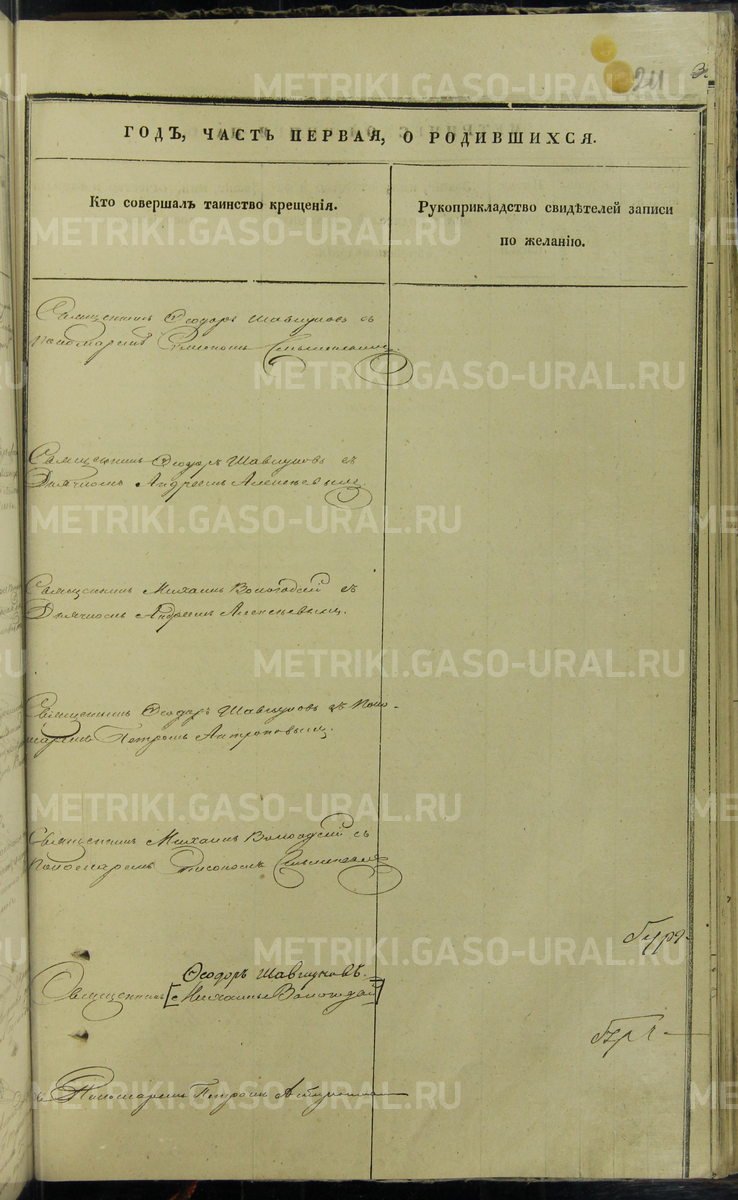 241
ГОДЪ, ЧАСТЬ ПЕРВАЯ, О РОДИВШИХСЯ.
Кто совершалъ таинство крещенія.
Рукоприкладство свидѣтелей записи
по желанію.
Священникъ Ѳеодоръ Шавкуновъ съ
Пономаремъ
Священникъ Ѳеодоръ Шавкуновъ съ
Дьячкомъ Андреемъ Алексѣевымъ.
Священникъ Михаилъ Вологодскій съ
Дьячкомъ Андреемъ Алексѣевымъ.
Священникъ Ѳеодоръ Шавкуновъ съ Поно-
маремъ Петромъ Антроповымъ.
Священникъ Михаилъ Вологодскій съ
Пономаремъ
Ѳеодоръ Шавкуновъ.
Священникъ [Михаилъ Вологодскій]
съ Пономаремъ Петромъ
METRIKI.GASO-URAL.RU